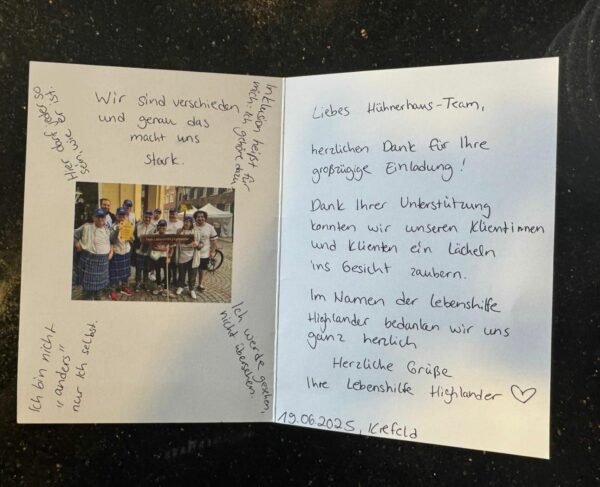 Wir sind verschieden
und genau das
macht uns
stark.
Inklusion heißt für
mich: Ich gehöre dazu.
Hier darf jeder so
sein, wie er ist.
Ich bin nicht
"anders"
nur ich selbst.
Ich werde gesehen,
nicht übersehen.
Liebes Hühnerhaus-Team,
herzlichen Dank für Ihre
großzügige Einladung!
Dank Ihrer Unterstützung
konnten wir unseren Klientinnen
und Klienten ein Lächeln
ins Gesicht zaubern.
Im Namen der Lebenshilfe
Highlander bedanken wir uns
ganz herzlich
Herzliche Grüße
Ihre Lebenshilfe Highlander
19.06.2025, Krefeld